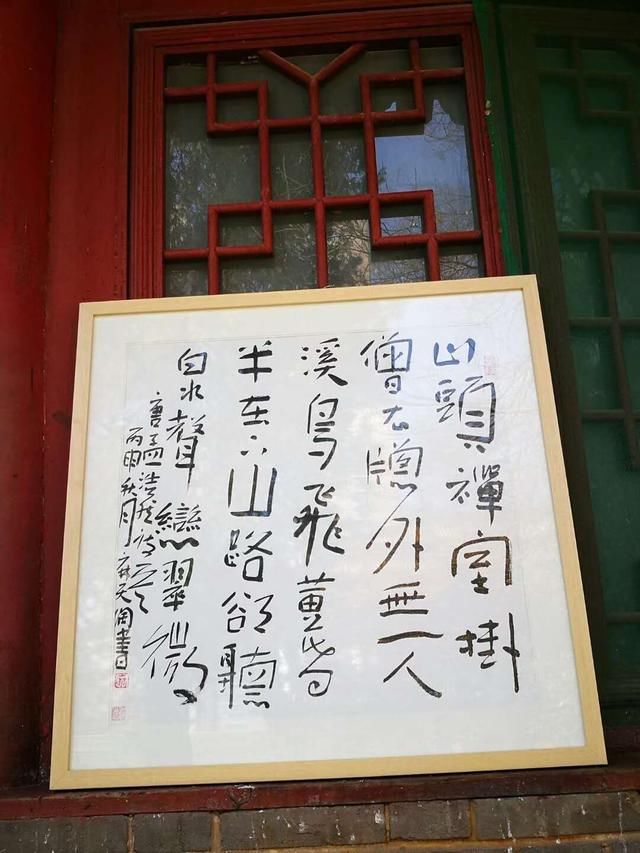 山頭禪室掛
僧衣牕外無人
溪鳥飛黃昏
半在下山路卻聽
泉聲戀翠微
唐孟浩然詩
丙申秋月麻天阔書